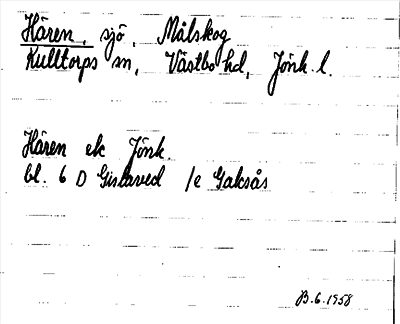 Hären, sjö, Målskog
Kulltorps sn, Västbo hd, Jönk. l.
Hären ek Jönk.
bl. 6 D Gislaved /e Gaksås
B.6.1958